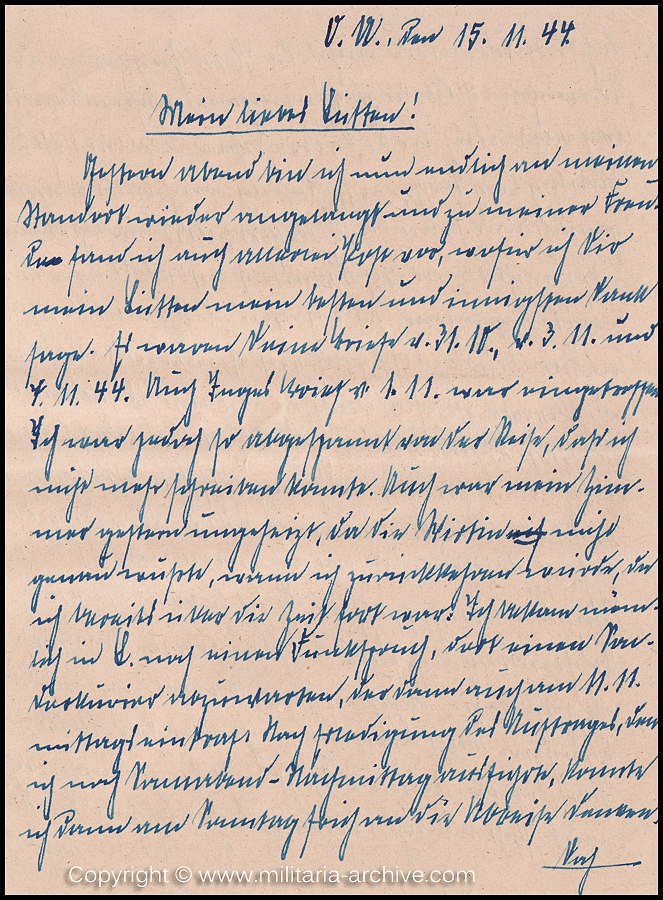 O. U., den 15. 11. 44.
Mein liebes Lütten!
Gestern abend bin ich nun endlich an meinen
Standort wieder angelangt und zu meiner Freu-
de fand ich auch allerlei Post vor, wofür ich Dir
mein Lütten mein besten und innigsten Dank
sage. Es waren Deine Briefe v. 31. 10., v. 3. 11. und
7. 11. 44. Auch Inges Brief v. 1. 11. war eingetroffen.
Ich war jedoch so abgespannt von der Reise, daß ich
nicht mehr schreiben konnte. Auch war mein Zim-
mer gestern ungeheizt, da die Wirtin nicht
genau wußte, wann ich zurückkehren würde, da
ich bereits über die Zeit fort war. Ich bekam näm-
lich in L. noch einen Funkspruch, dort einen Son-
derkurier abzuwarten, der dann auch am 11. 11.
mittags eintraf. Nach Erledigung des Auftrages, den
ich noch Sonnabend-Nachmittag ausführte, konnte
ich dann am Sonntag früh an die Abreise denken.
Copyright © www.militaria-archive.com